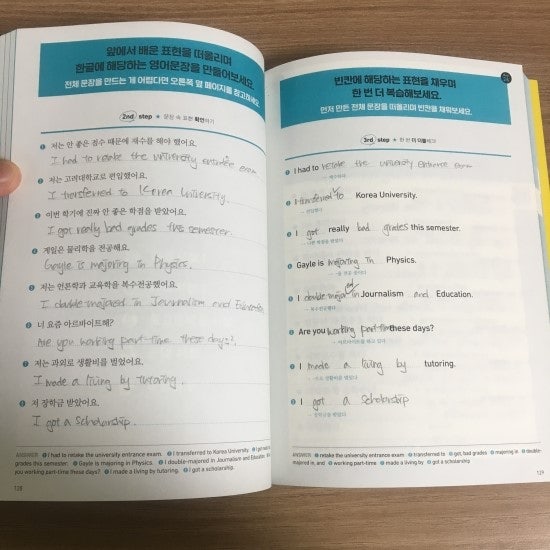 앞에서 배운 표현을 떠올리며
한글에 해당하는 영어문장을 만들어보세요.
전체 문장을 만드는 게 어렵다면 오른쪽 옆 페이지를 참고하세요.
2nd step ★ 문장 속 표현 확인하기
1 저는 안 좋은 점수 때문에 재수를 해야 했어요.
I had to retake the university entrance exam.
2 저는 고려대학교로 편입했어요.
I transferred to Korea University.
3 이번 학기에 진짜 안 좋은 학점을 받았어요.
I got really bad grades this semester.
4 게일은 물리학을 전공해요.
Gayle is majoring in Physics.
5 저는 언론학과 교육학을 복수전공했어요.
I double majored in Journalism and Education.
6 너 요즘 아르바이트해?
Are you working part-time these days?
7 저는 과외로 생활비를 벌었어요.
I made a living by tutoring.
8 저 장학금 받았어요.
I got a scholarship.
ANSWER 1 I had to retake the university entrance exam. 2 I transferred to Korea University. 3 I got
grades this semester. 4 Gayle is majoring in Physics. 5 I double-majored in Journalism and Education.
you working part-time these days? 7 I made a living by tutoring. 8 I got a scholarship.
128
빈칸에 해당하는 표현을 채우며
한 번 더 복습해보세요.
먼저 만든 전체 문장을 떠올리며 빈칸을 채워보세요.
3rd step ★ 한 번 더
1 I had to retake the university entrance exam
2 I transferred to Korea University.
편입했다
3 I got really bad grades this semester.
4 Gayle is majoring in Physics.
5 I double major ed in Journalism and Education.
복수전공했다
6 Are you working part-time these days?
7 I made a living by tutoring.
8 I got a scholarship
장학금을 받았다
ANSWER 1 retake the university entrance exam 2 transferred to 3 got, bad grades 4 majoring in 5 double-
majored in, and 6 working part-time 7 made a living by 8 got a scholarship
129